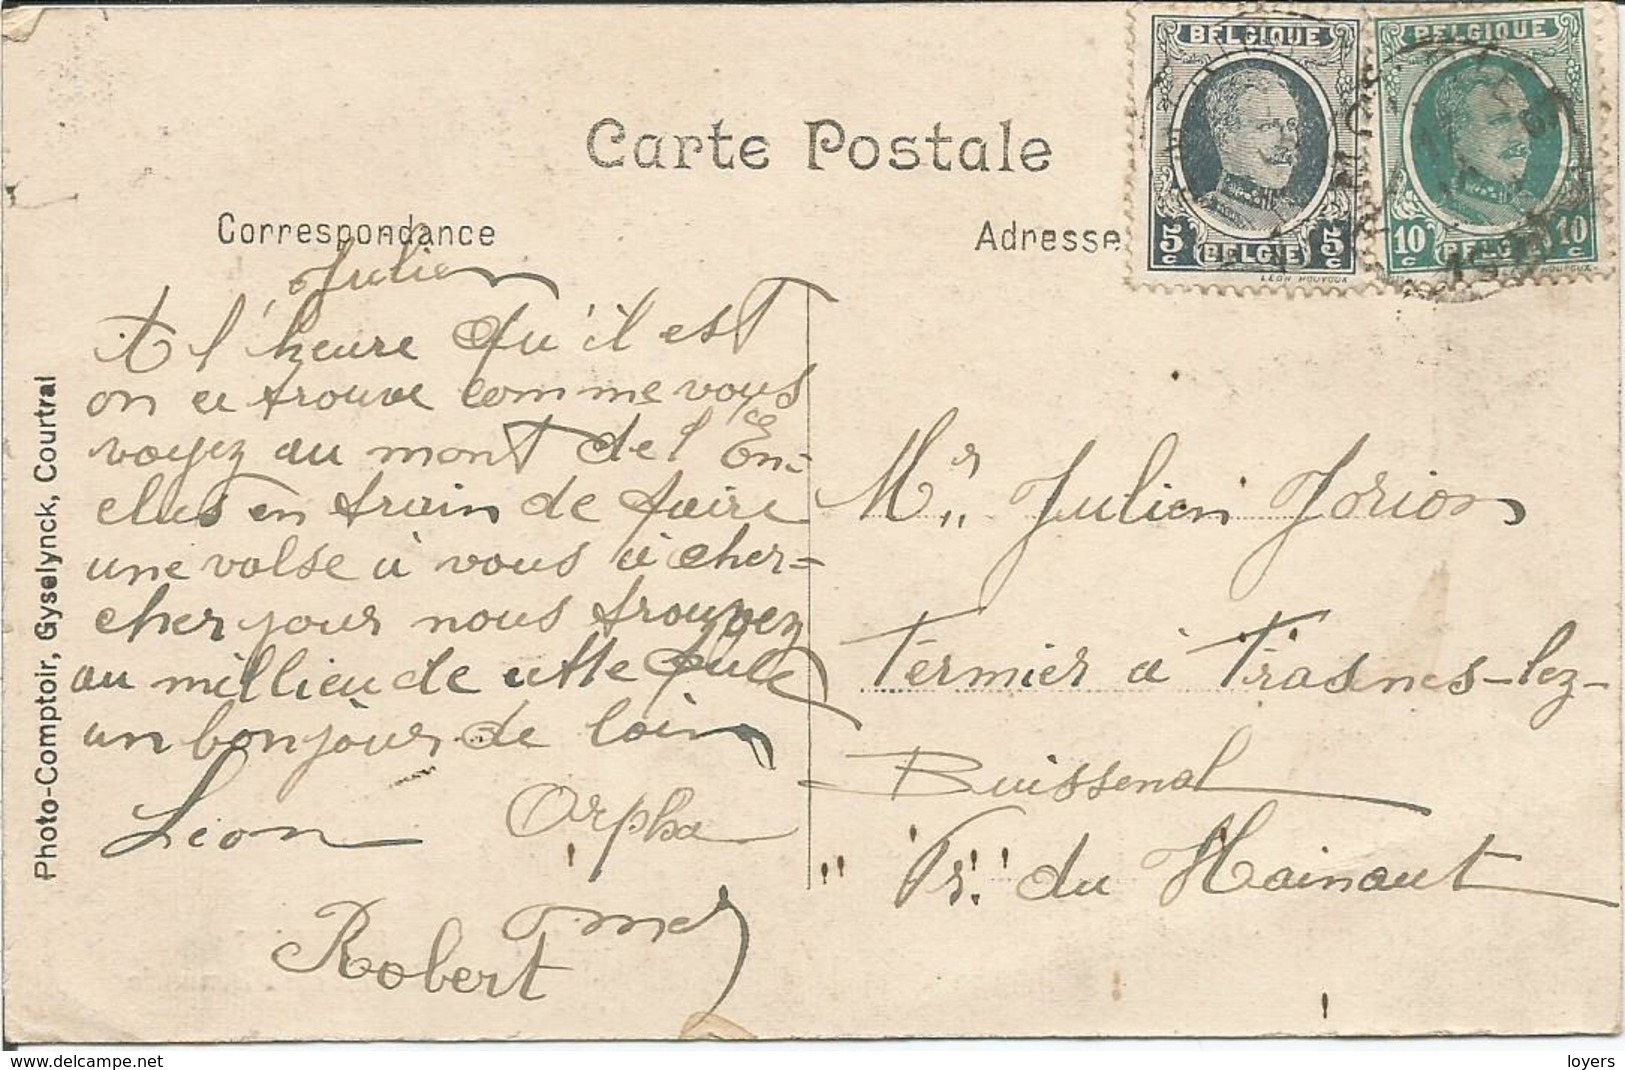 Carte Postale
Correspondance
Adresse
BELGIQUE
5c BELGIE 5c
LEON HOUYOUX
BELGIQUE
10c BELGIE 10c
HOUYOUX
Julien
A l'heure qu'il est
on ce trouve comme vous
voyez au mont de l'En-
clus en train de faire
une valse à vous à cher=
cher pour nous trouvez
au millieu de cette foule
un bonjour de loin
Léon Orpha
Omer
Robert
Mr. Julien Jorion
Fermier à Frasnes-lez-
Buissenal
Pr. du Hainaut
Photo-Comptoir, Gyselynck, Courtrai
www.delcampe.net
loyers